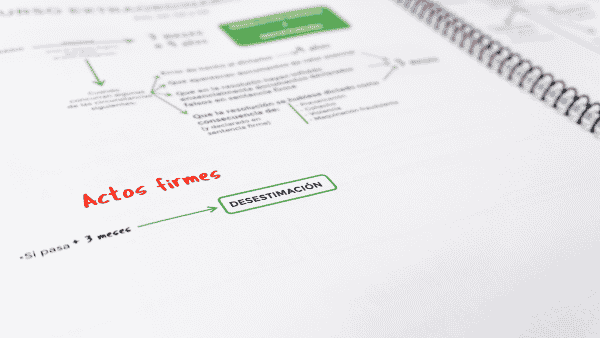 CURSO EXTRAORDINAR
3 meses
4 años
Cuando
concurran algunas
de las circunstancias
siguientes:
Que aparezcan documentos de valor esencial
Que en la resolución hayan influido
esencialmente documentos declarados
falsos en sentencia firme
Que la resolución se hubiese dictado como
consecuencia de:
(y declarado en
sentencia firme)
- Prevaricación
- Cohecho
- Violencia
- Maquinación fraudulenta
3 meses
Actos firmes
DESESTIMACIÓN
•Si pasa + 3 meses